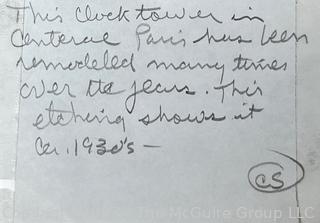 This clock tower in
Centeral Paris has been
remodeled many times
over the years. This
etching shows it
Ca. 1930's —
CS
The McGuire Group LLC